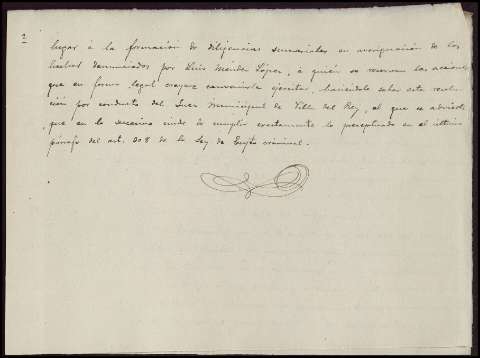 2
lugar á la formación de diligencias sumariales en averiguación de los
hechos denunciados por Luis Méndez López, á quién se reservan las acciones
que en forma legal crayere convenirle ejercitar, haciéndole saber esta resolu-
ción por conducto del Juez Municipal de Villa del Rey, al que se advierte
que en lo sucesivo cuide de cumplir exactamente lo preceptuado en el último
párrafo del art. 308 de la Ley de Enjto criminal.